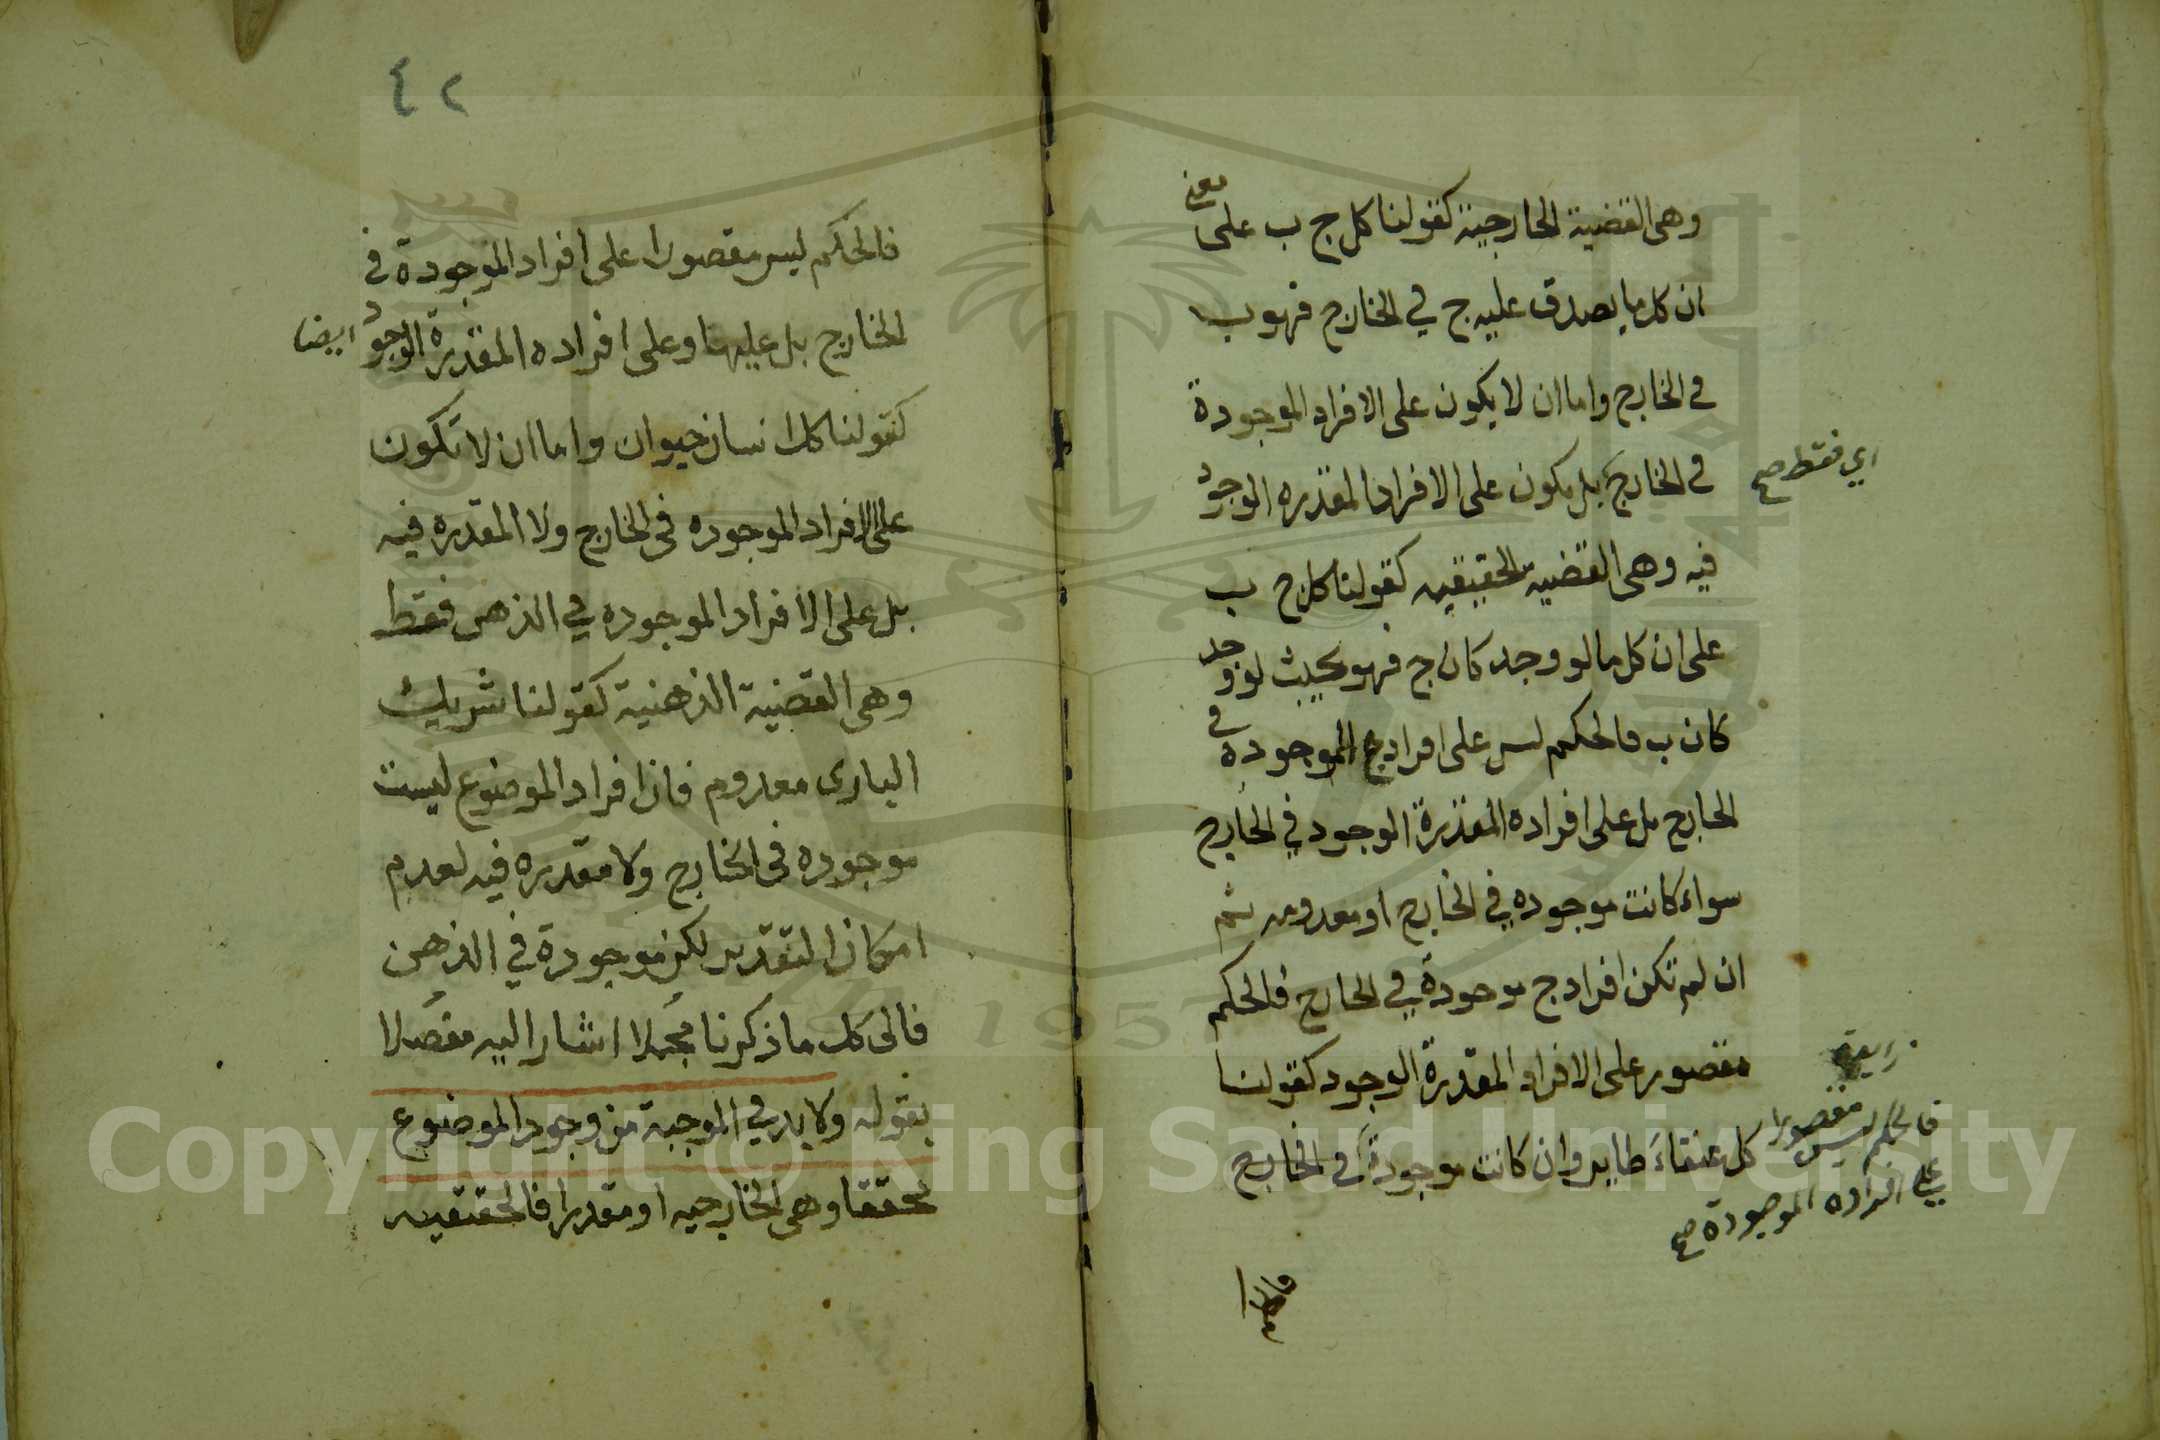 وهى القضية الخارجية كقولنا كل ج ب على معنى
ان كل ما يصدق عليه ج في الخارج فهو ب
في الخارج واما ان لا يكون على الافراد الموجودة
في الخارج بل يكون على الافراد المقدره الوجود
اي فقط صح
فيه وهى القضيه الحقيقيه كقولنا كل ج ب
على ان كل ما لو وجد كان ج فهو بحيث لو وجد
كان ب فالحكم ليس على افراد ج الموجودة في
الخارج بل على افراده المقدرة الوجود في الخارج
سواء كانت موجوده في الخارج او معدومه ثم
ان لم تكن افراد ج موجودة في الخارج فالحكم
مقصور على الافراد المقدرة الوجود كقولنا
كل عنقاء طاير وان كانت موجودة في الخارج
فالحكم ليس مقصورا
على افراده الموجودة صح
فالحكم
٤٢
فالحكم ليس مقصورا على افراد الموجودة في
الخارج بل عليها وعلى افراده المقدرة الوجود ايضا
كقولنا كل انسان حيوان واما ان لا تكون
على الافراد الموجوده في الخارج ولا المقدره فيه
بل على الافراد الموجوده في الذهن فقط
وهى القضية الذهنية كقولنا شريك
البارى معدوم فان افراد الموضوع ليست
موجوده فى الخارج ولا مقدره فيه لعدم
امكان التقدير لكن موجودة في الذهن
فالى كل ما ذكرنا مجملا اشار اليه مفصلا
بقوله ولا بد في الموجبة من وجود الموضوع
محققا وهى الخارجيه او مقدرا فالحقيقيه
1957
Copyright © King Saud University